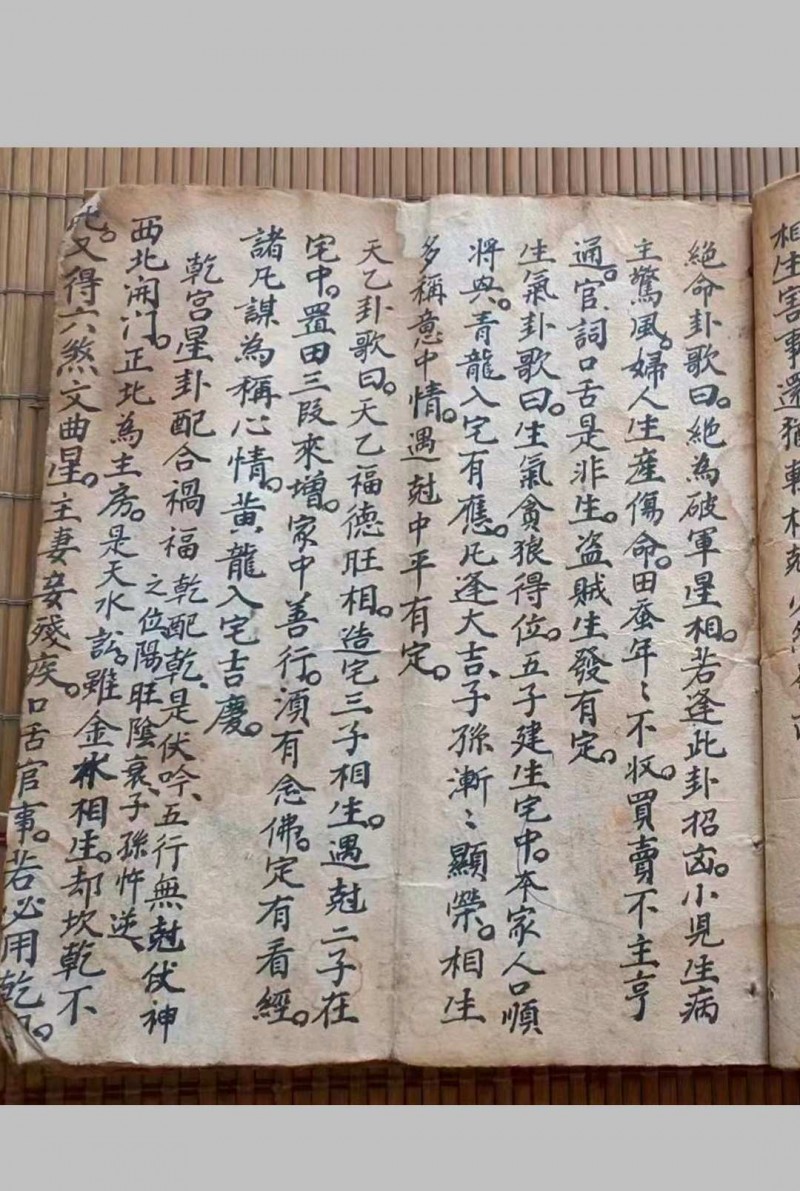 相生害事還
絕命卦歌曰。絕為破軍星相。若逢此卦招凶。小児生病
主驚風。婦人生產傷命。田蚕年〻不收。買賣不主亨
通。官詞口舌是非生。盗賊生發有定。
生氣卦歌曰。生氣貪狼得位。五子建生宅中。本家人口順
將興。青龍入宅有應。凡逢大吉、子孫漸〻顯榮。相生
多稱意中情。遇尅中平有定。
天乙卦歌曰。天乙福德旺相。造宅三子相生。遇尅二子在
宅中。置田三段來增。家中善行。須有念佛。定有看經。
諸凡謀為稱心情。黃龍入宅吉慶。
乾宮星卦配合禍福 乾配乾、是伏吟、五行無尅伏神
之位。陽旺陰衰、子孫忤逆、
西北開门。正北為主房。是天水訟。雖金水相生。却坎乾不
又得六煞文曲星。主妻妾殘疾。口舌官事。若必用乾